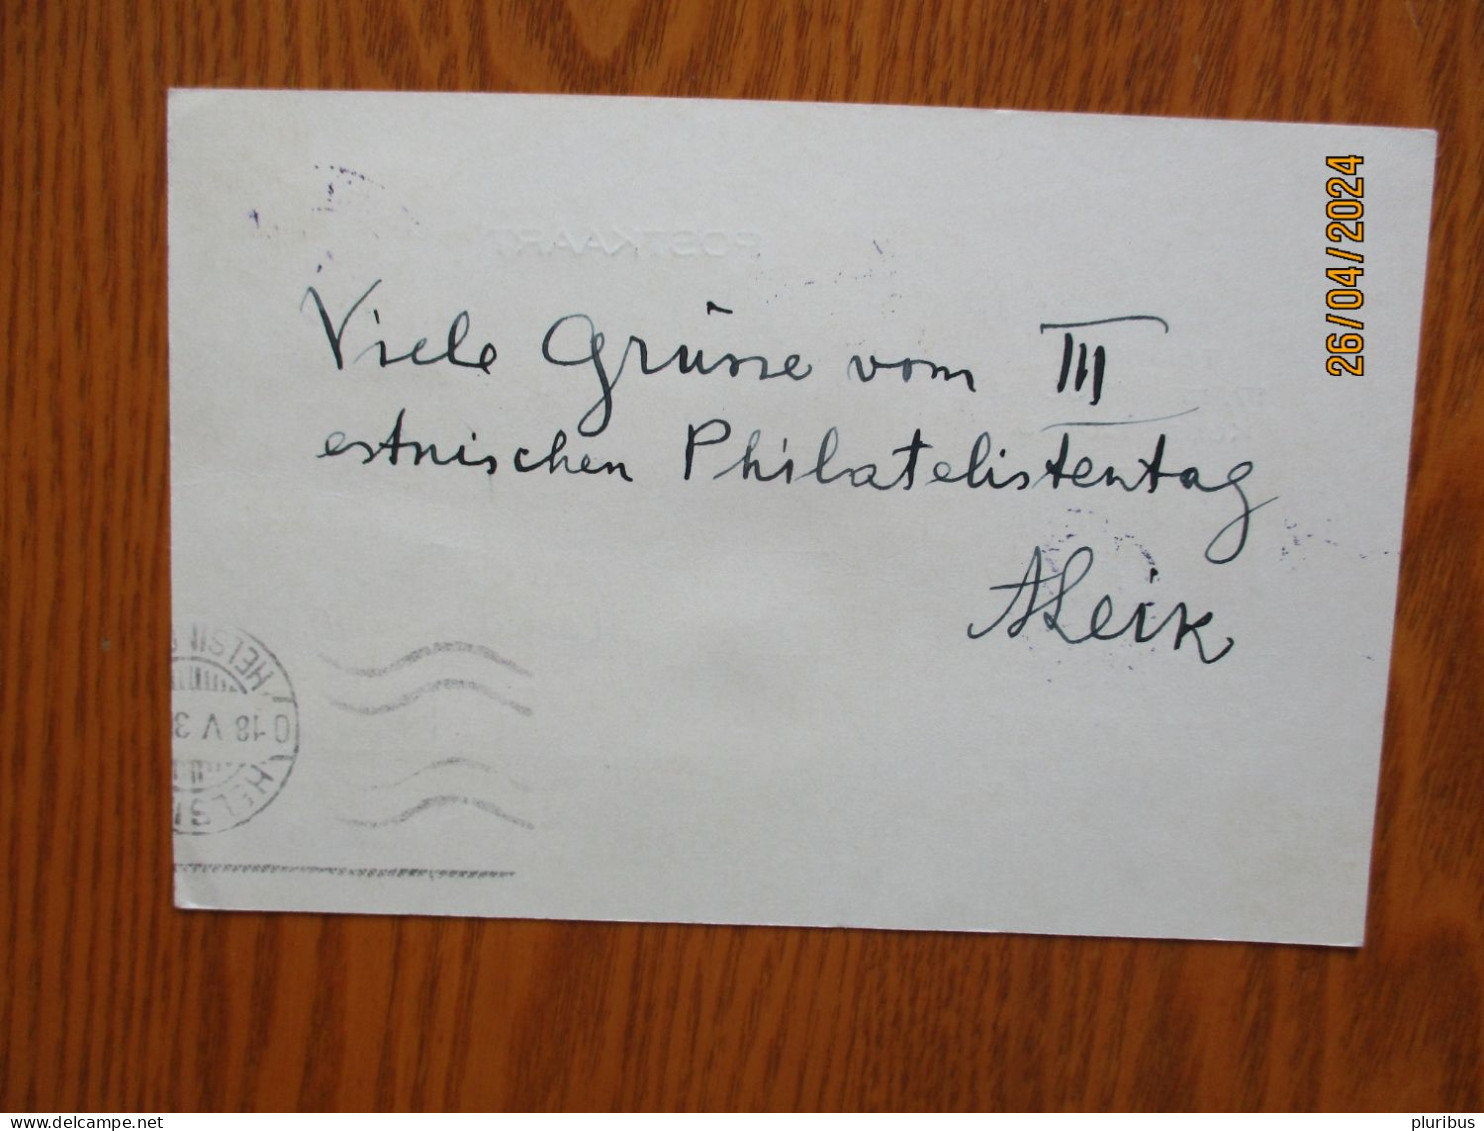 26/04/2024
POSTKAART
Viele Grüsse vom III
estnischen Philatelistentag
ALeik
HELSIN
18 V 3
HELSI
pluribus